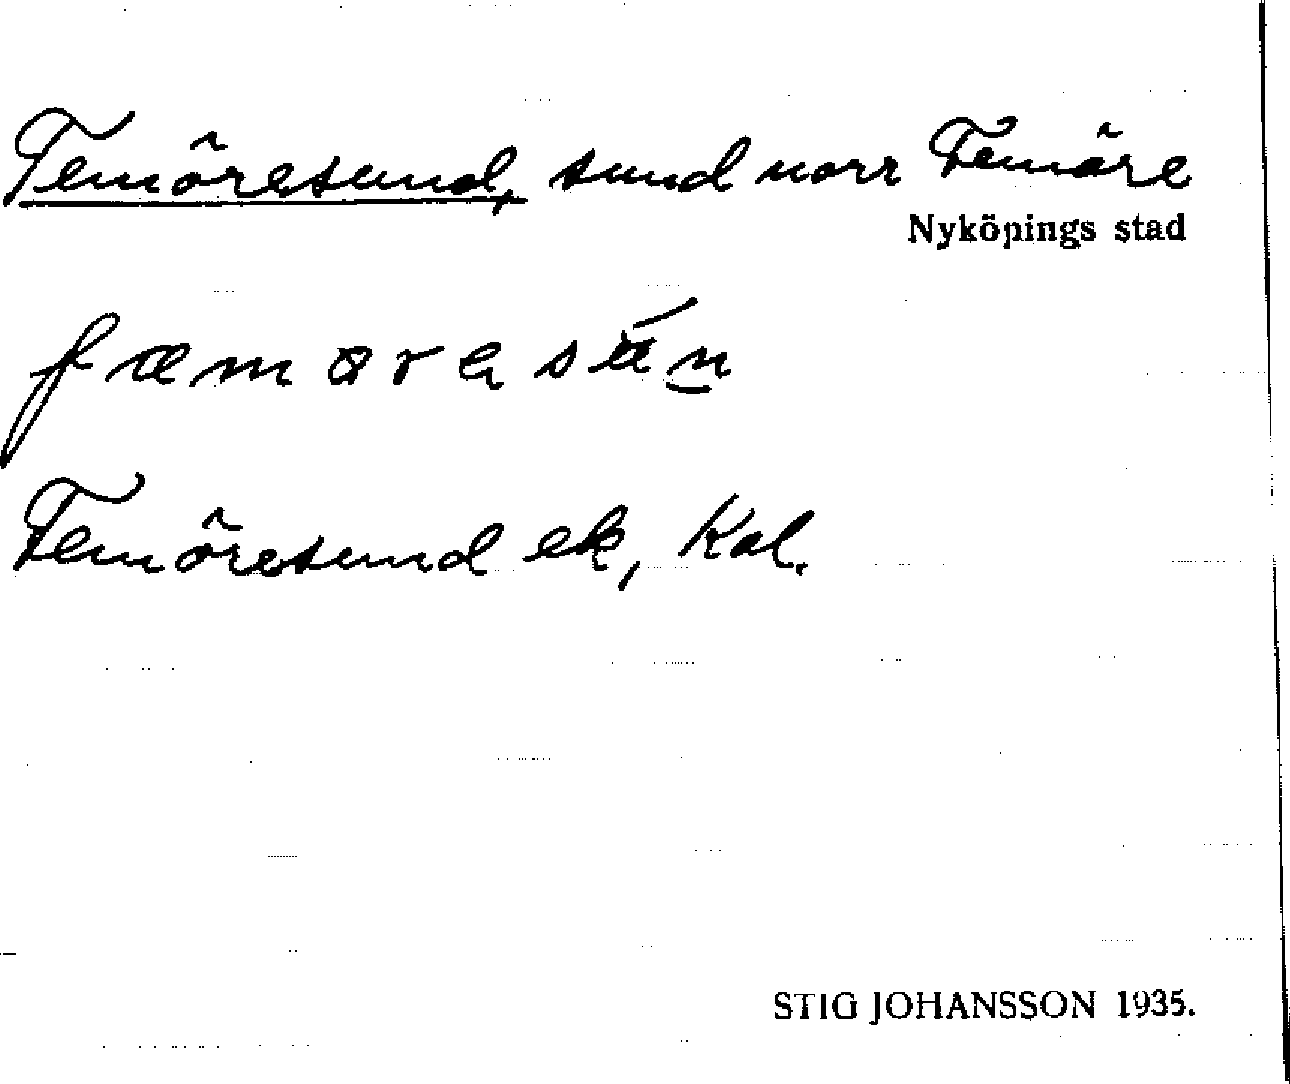 Femöresund, sund norr Femöre
Nyköpings stad
Femöresund ek, Kal.
STIG JOHANSSON 1935.